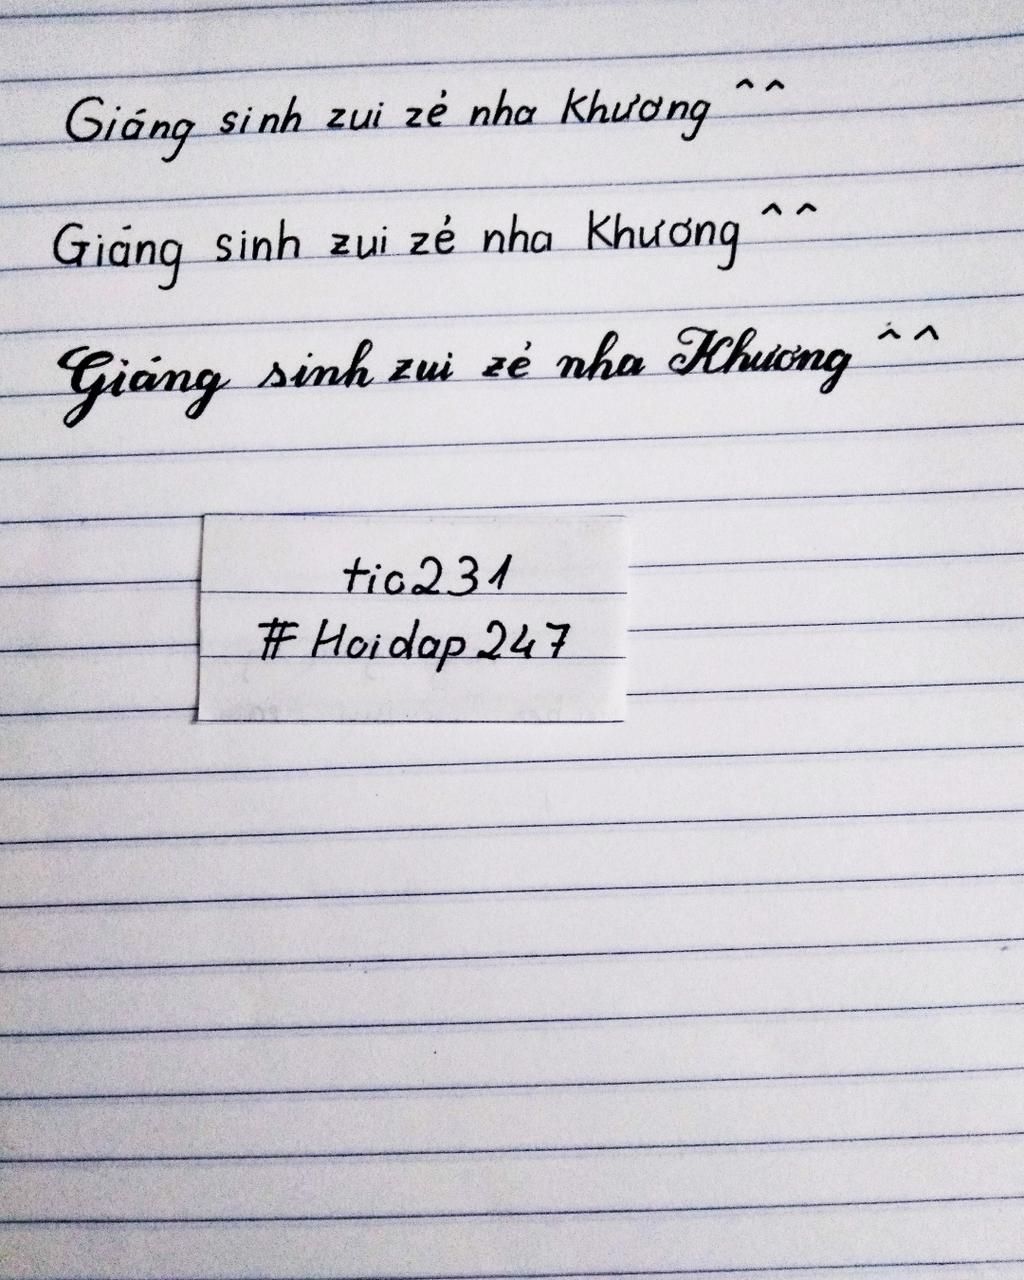 Giáng sinh zui zẻ nha Khương ^^
Giáng sinh zui zẻ nha Khương ^^
Giáng sinh zui zẻ nha Khương ^^
tic231
# Hoidap247